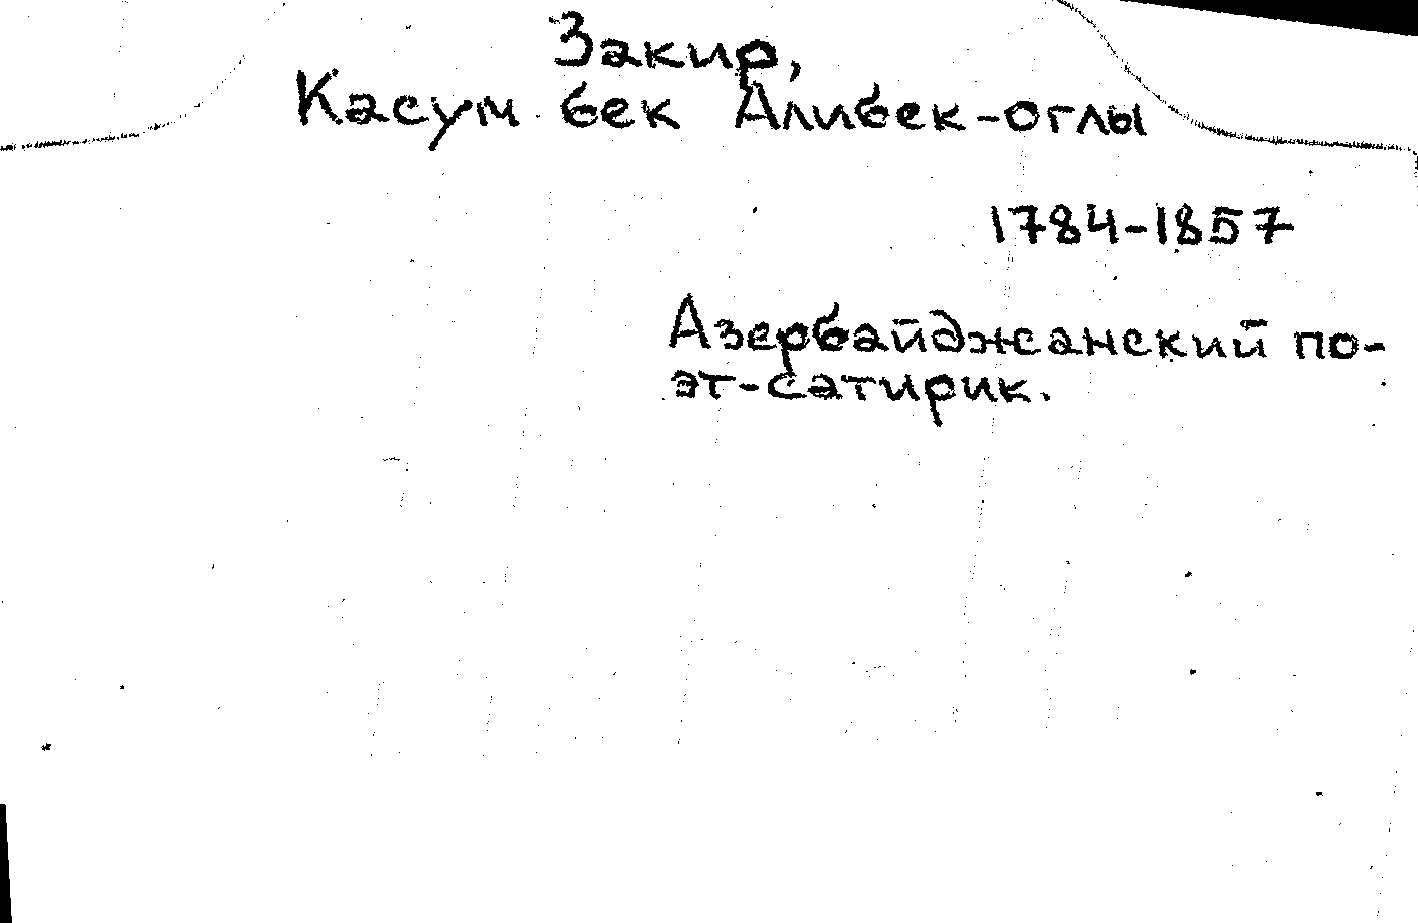 Закир,
Касум бек Алибек-оглы
1784-1857
Азербайджанский по-
эт-сатирик.